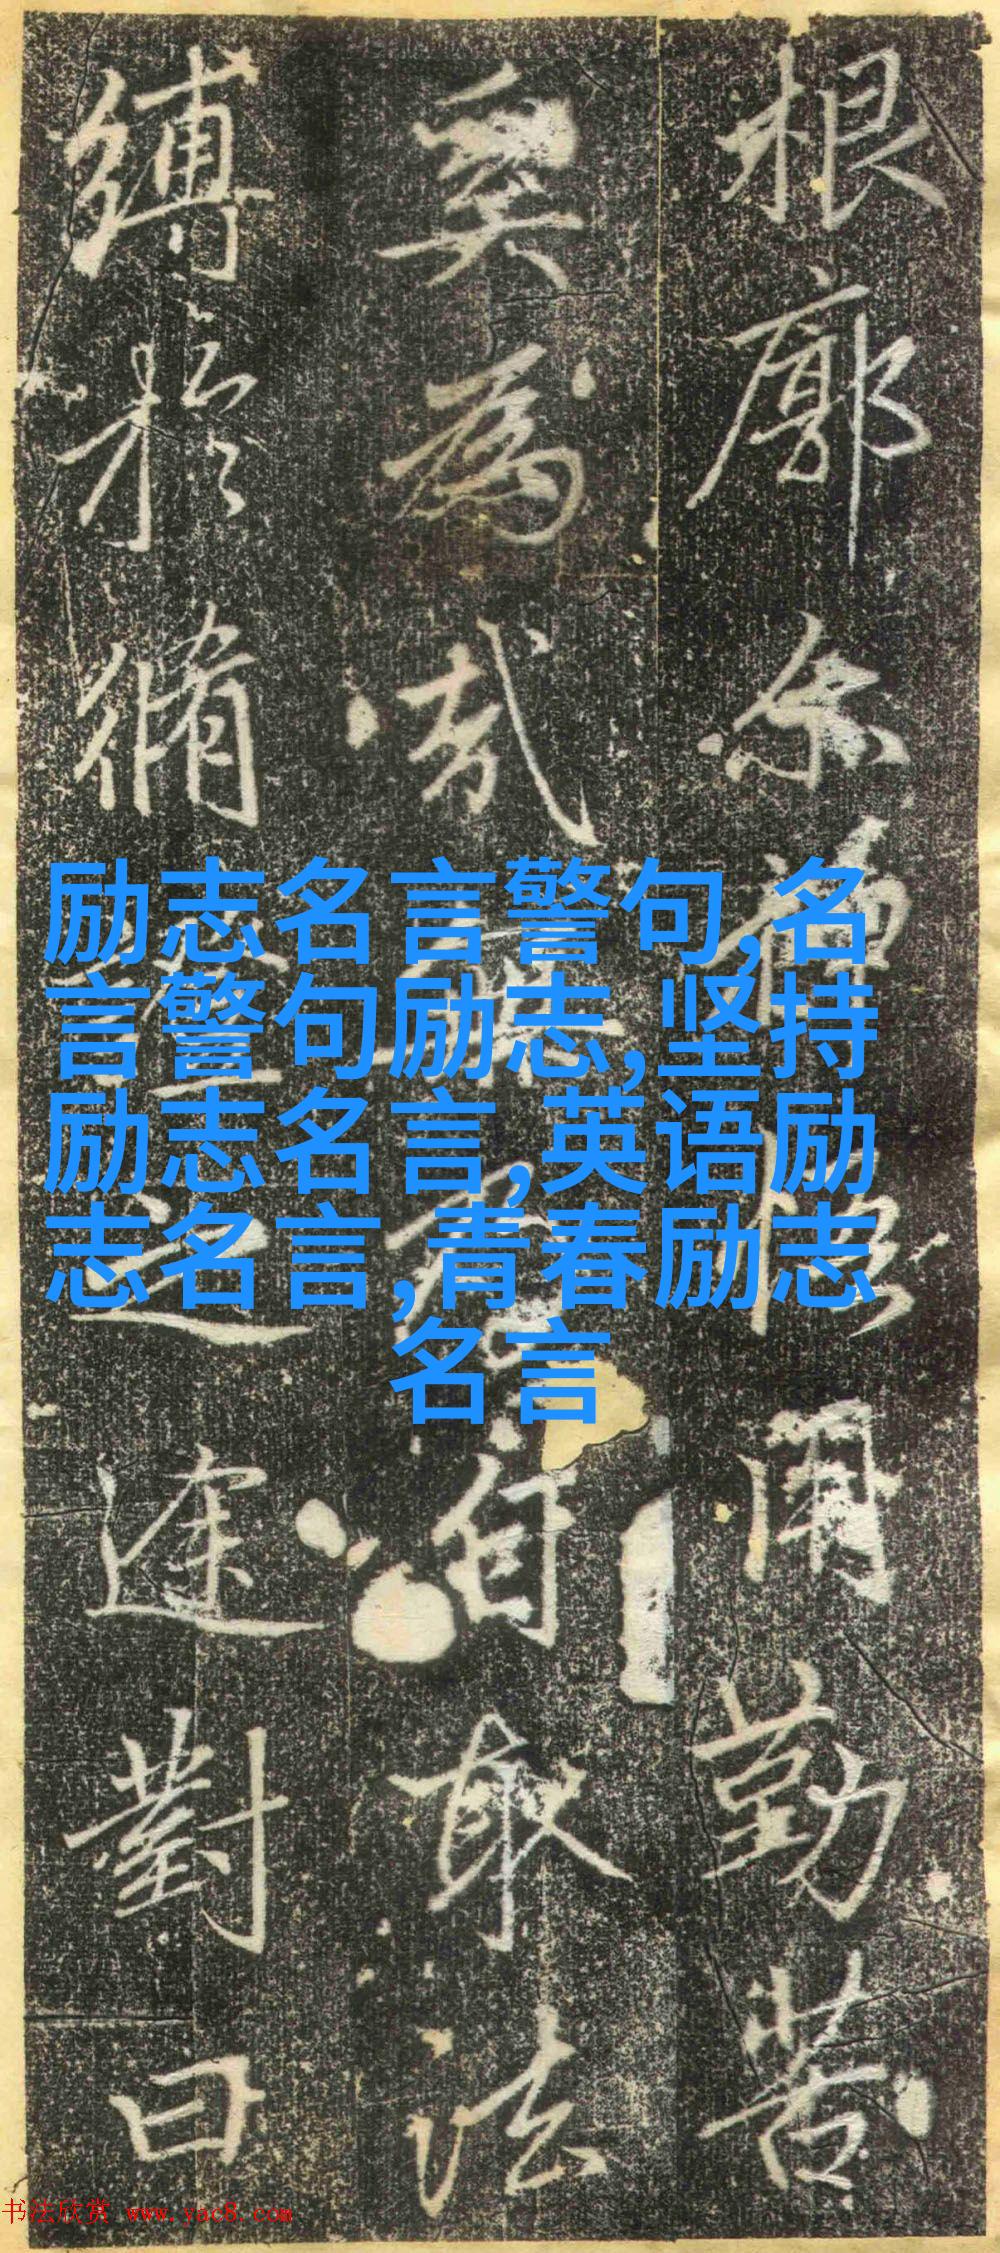 根廓尔用勤苦
奚為哉自取法
縛於脩之途對曰
励志名言警句,名
言警句励志,坚持
励志名言,英语励
志名言,青春励志
名言
书法欣赏 www.yac8.com